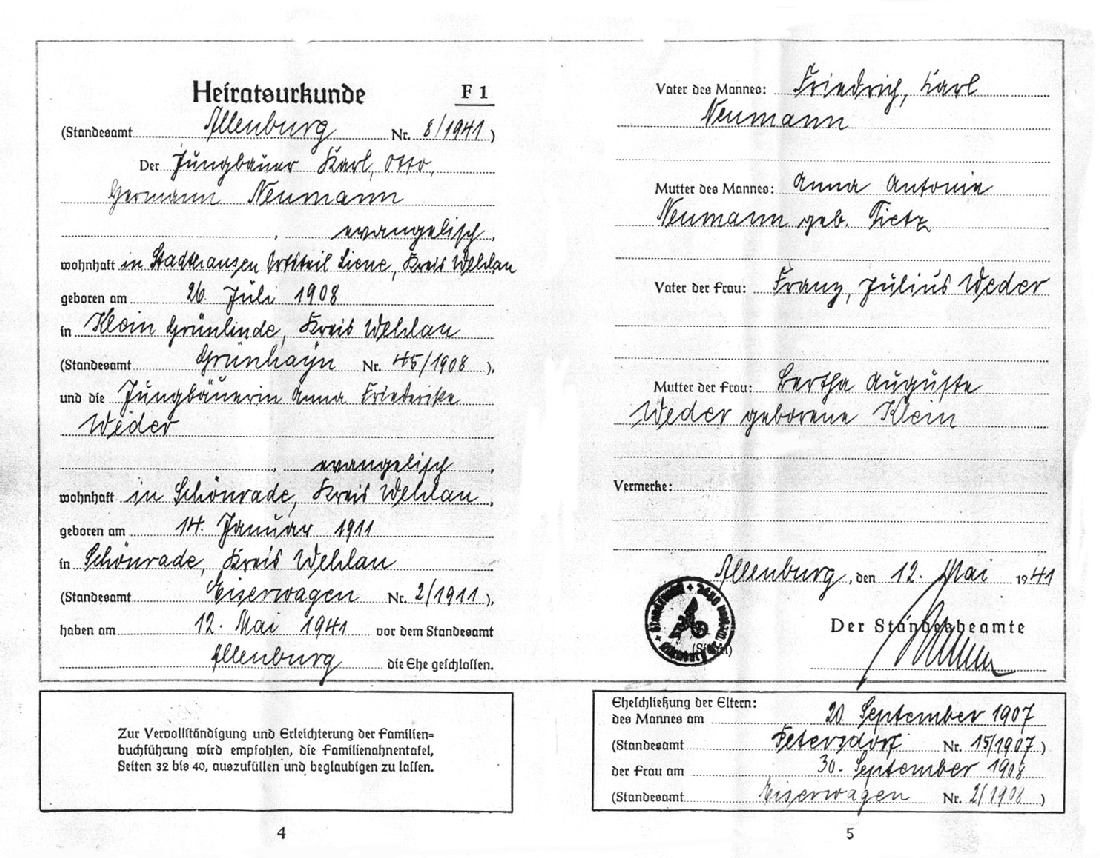 Heiratsurkunde F 1
(Standesamt Allenburg Nr. 8/1941)
Der Jungbauer Karl, Otto,
Hermann Neumann
, evangelisch,
wohnhaft in Stadthausen Ortsteil Liene, Kreis Wehlau
geboren am 26. Juli 1908
in Klein Grünlinde, Kreis Wehlau
(Standesamt Grünhayn Nr. 45/1908),
und die Jungbäuerin Anna Friederike
Weder
, evangelisch,
wohnhaft in Schönrade, Kreis Wehlau,
geboren am 14. Januar 1911
in Schönrade, Kreis Wehlau
(Standesamt Eiserwagen Nr. 2/1911),
haben am 12. Mai 1941 vor dem Standesamt
Allenburg die Ehe geschlossen.
Zur Vervollständigung und Erleichterung der Familien-
buchführung wird empfohlen, die Familienahnentafel,
Seiten 32 bis 40, auszufüllen und beglaubigen zu lassen.
4
Vater des Mannes: Friedrich, Karl
Neumann
Mutter des Mannes: Anna Antonie
Neumann geb. Tietz
Vater der Frau: Franz, Julius Weder
Mutter der Frau: Bertha Auguste
Weder geborene Klein
Vermerke:
Allenburg, den 12. Mai 1941
Der Standesbeamte
(Siegel)
Eheschließung der Eltern:
des Mannes am 20. September 1907
(Standesamt Petersdorf Nr. 15/1907)
der Frau am 30. September 1908
(Standesamt Eiserwagen Nr. 2/1908)
5